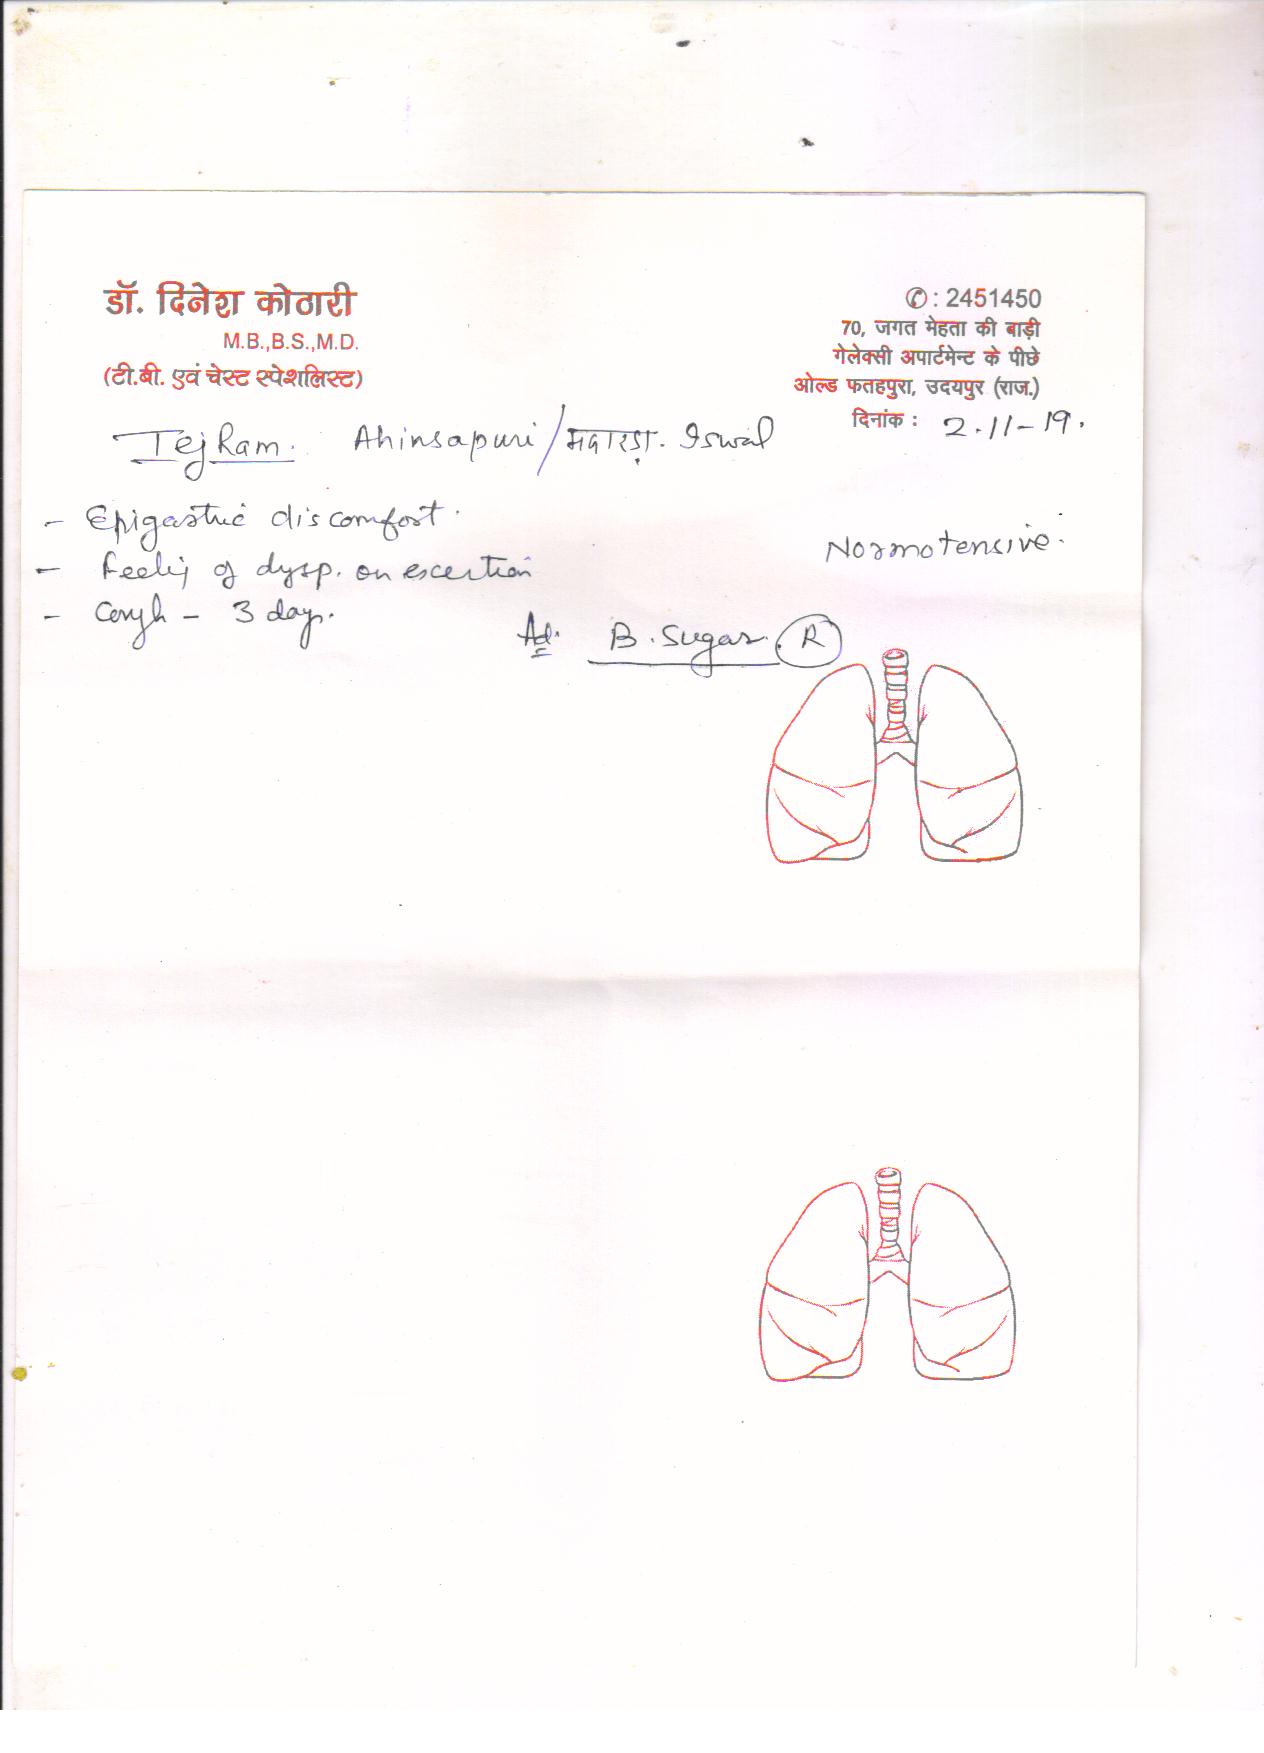 डॉ. दिनेश कोठारी
M.B.,B.S.,M.D.
(टी.बी. एवं चेस्ट स्पेशलिस्ट)
✆: 2451450
70, जगत मेहता की बाड़ी
गेलेक्सी अपार्टमेन्ट के पीछे
ओल्ड फतहपुरा, उदयपुर (राज.)
दिनांक : 2.11-19.
TejRam. Ahinsapuri / Iswal
- Epigastric discomfort.
Normotensive.
- Feeling of dysp. on excertion
- Cough - 3 days.
Ad. B. Sugar. R